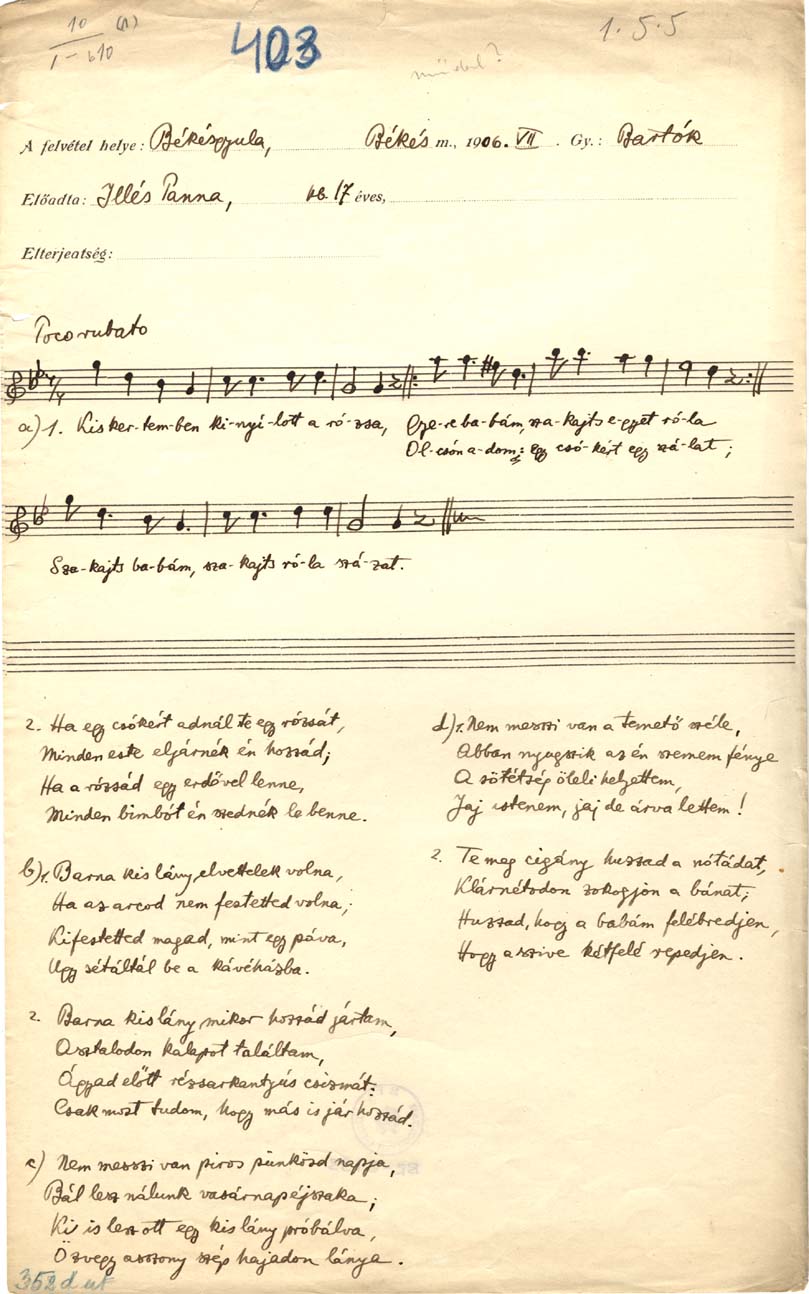 10 (1)
I–610
403
1.5.5
műdal?
A felvétel helye: Békésgyula, Békés m., 1906. VII. Gy.: Bartók
Előadta: Illés Panna, kb. 17 éves,
Elterjeatség:
Poco rubato
a) 1. Kis ker-tem-ben ki-nyí-lott a ró-zsa, Gye-re ba-bám, sza-kajts e-gyet ró-la
Ol-csón a-dom: egy csó-kért egy szá-lat;
Sza-kajts ba-bám, sza-kajts ró-la szá-zat.
2. Ha egy csókért adnál te egy rózsát,
Minden este eljárnék én hozzád;
Ha a rózsád egy erdővel lenne,
Minden bimbót én szednék le benne.
b) 1. Barna kis lány, elvettelek volna,
Ha az arcod nem festetted volna;
Kifestetted magad, mint egy páva,
Ugy sétáltál be a kávéházba.
2. Barna kis lány, mikor hozzád jártam,
Asztalodon kalapot találtam,
Ágyad előtt rézsarkantyús csizmát:
Csak most tudom, hogy más is jár hozzád.
c) Nem messzi van piros pünkösd napja,
Bál lesz nálunk vasárnap éjszaka;
Ki is lesz ott egy kis lány próbálva,
Özvegy asszony szép hajadon lánya.
d) 1. Nem messzi van a temető széle,
Abban nyugszik az én szemem fénye
A sötétség öleli helyettem,
Jaj istenem, jaj de árva lettem!
2. Te meg cigány huzzad a nótádat,
Klárnétodon zokogjon a bánat;
Huzzad, hogy a babám felébredjen,
Hogy a szive kétfelé repedjen.
352d ut